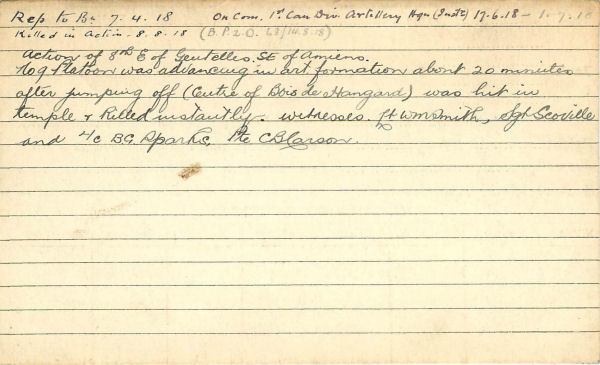 Rep to Bn 7.4.18 On Com. 1st Can Div. Artillery Hqrs (Inste) 17-6.18 - 1-7.18
Killed in Action - 8.8.18 (B.P.2.O.
Action of 8th E of Gentelles. SE of Amiens.
No 9 Platoon was advancing in art formation about 20 minutes
after jumping off (Centre of Bois de Hangard) was hit in
temple & killed instantly. witnesses. Lt Wm Smith, Sgt Scoville
and L/c B.G. Sparks, Pte C B Carson.